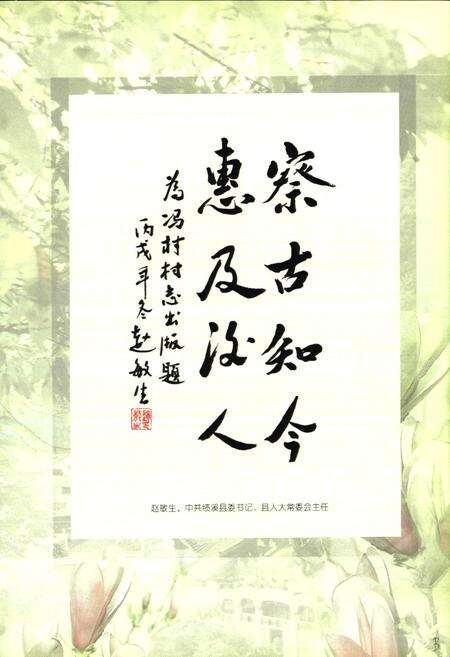 察古知今
惠及后人
为冯村村志出版题
丙戌年冬赵敏生
赵敏生，中共绩溪县委书记、县人大常委会主任